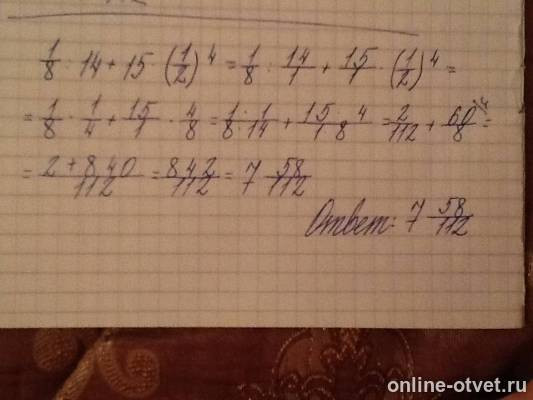 1/8 : 14 + 15 (1/2)^4 = 1/8 : 14/1 + 15/1 · (1/2)^4 =
= 1/8 · 1/4 + 15/1 · 4/8 = 1/8 · 1/14 + 15/1 8 4 = 2/112 + 60/8 =
= 2 + 840/112 = 842/112 = 7 58/112
Ответ: 7 58/112
online-otvet.ru